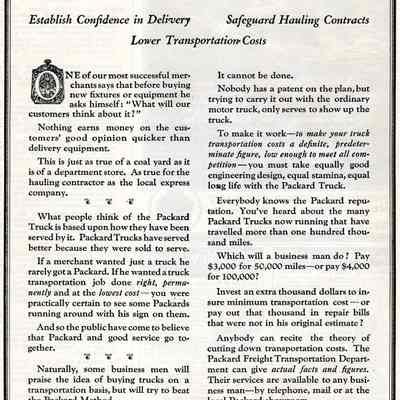 Establish Confidence in Delivery
Safeguard Hauling Contracts
Lower Transportation Costs
ONE of our most successful mer-
chants says that before buying
new fixtures or equipment he
asks himself: "What will our
customers think about it?"
Nothing earns money on the cus-
tomers' good opinion quicker than
delivery equipment.
This is just as true of a coal yard as it
is of a department store. As true for the
hauling contractor as the local express
company.
What people think of the Packard
Truck is based upon how they have been
served by it. Packard Trucks have served
better because they were sold to serve.
If a merchant wanted just a truck he
rarely got a Packard. If he wanted a truck
transportation job done right, perma-
nently and at the lowest cost—you were
practically certain to see some Packards
running around with his sign on them.
And so the public have come to believe
that Packard and good service go to-
gether.
Naturally, some business men will
praise the idea of buying trucks on a
transportation basis, but will try to beat
the Packard Method.
It cannot be done.
Nobody has a patent on the plan, but
trying to carry it out with the ordinary
motor truck, only serves to show up the
truck.
To make it work—to make your truck
transportation costs a definite, predeter-
minate figure, low enough to meet all com-
petition—you must take equally good
engineering design, equal stamina, equal
long life with the Packard Truck.
Everybody knows the Packard repu-
tation. You've heard about the many
Packard Trucks now running that have
travelled more than one hundred thou-
sand miles.
Which will a business man do? Pay
$3,000 for 50,000 miles—or pay $4,000
for 100,000?
Invest an extra thousand dollars to in-
sure minimum transportation cost—or
pay out that thousand in repair bills
that were not in his original estimate?
Anybody can recite the theory of
cutting down transportation costs. The
Packard Freight Transportation Depart-
ment can give actual facts and figures.
Their services are available to any busi-
ness man—by telephone, mail or at the
local Packard showroom.